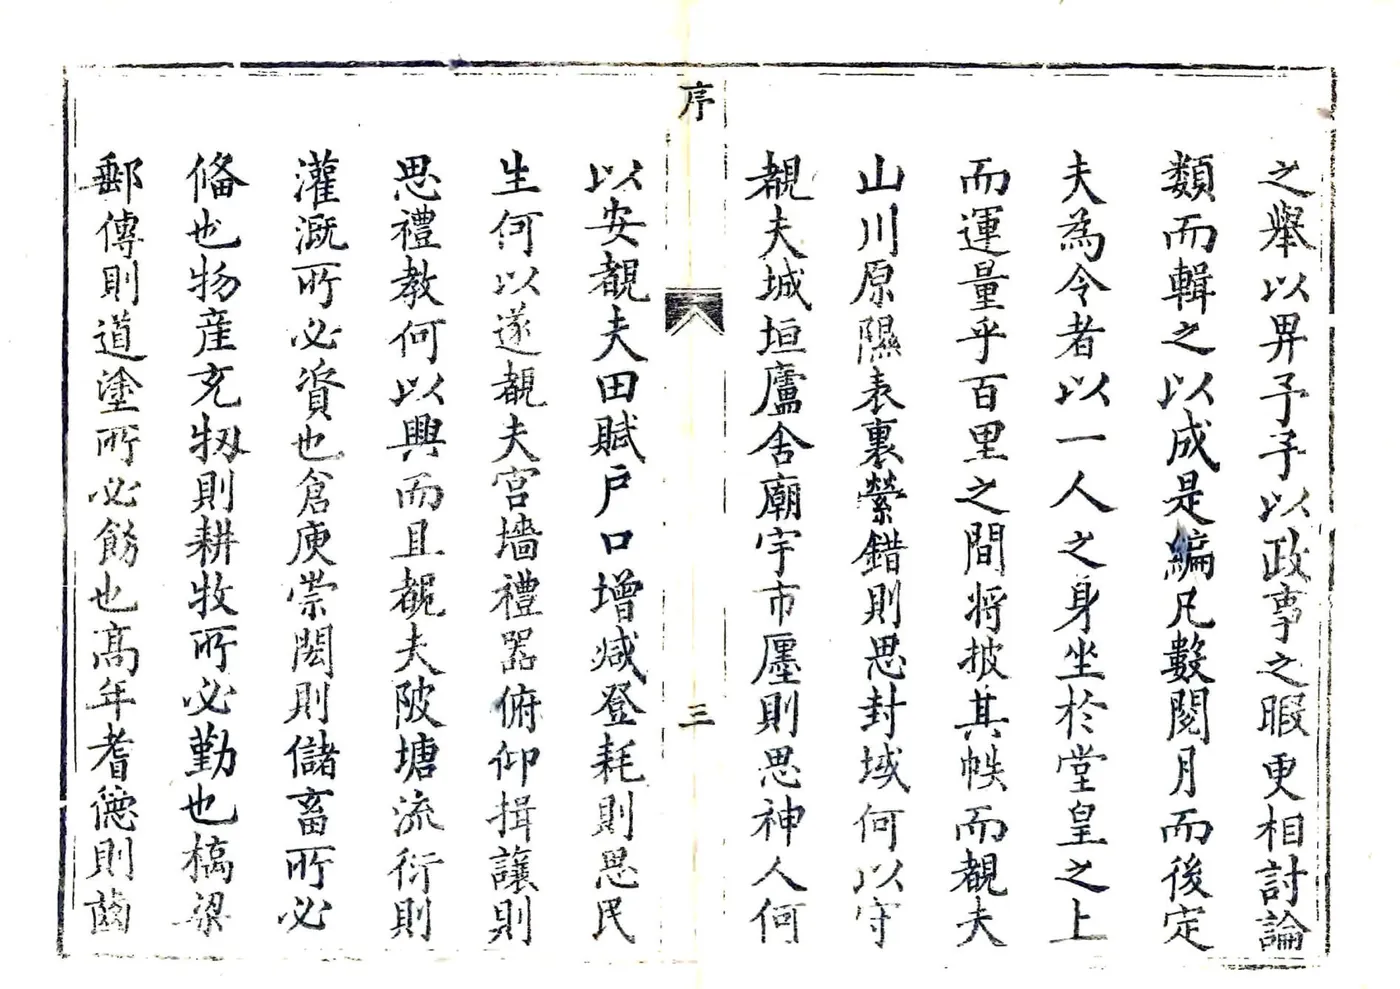 之舉以畀予予以政事之暇更相討論
類而輯之以成是編凡數閱月而後定
夫為令者以一人之身坐於堂皇之上
而運量乎百里之間將披其帙而覩夫
山川原隰表裏縈錯則思封域何以守
覩夫城垣廬舍廟宇市廛則思神人何
序
三
以安覩夫田賦戶口增減登耗則思民
生何以遂覩夫宮墻禮器俯仰揖讓則
思禮教何以興而且覩夫陂塘流衍則
灌溉所必資也倉庾崇閎則儲畜所必
備也物產充牣則耕牧所必勤也橋梁
郵傳則道塗所必飭也高年耆德則齒